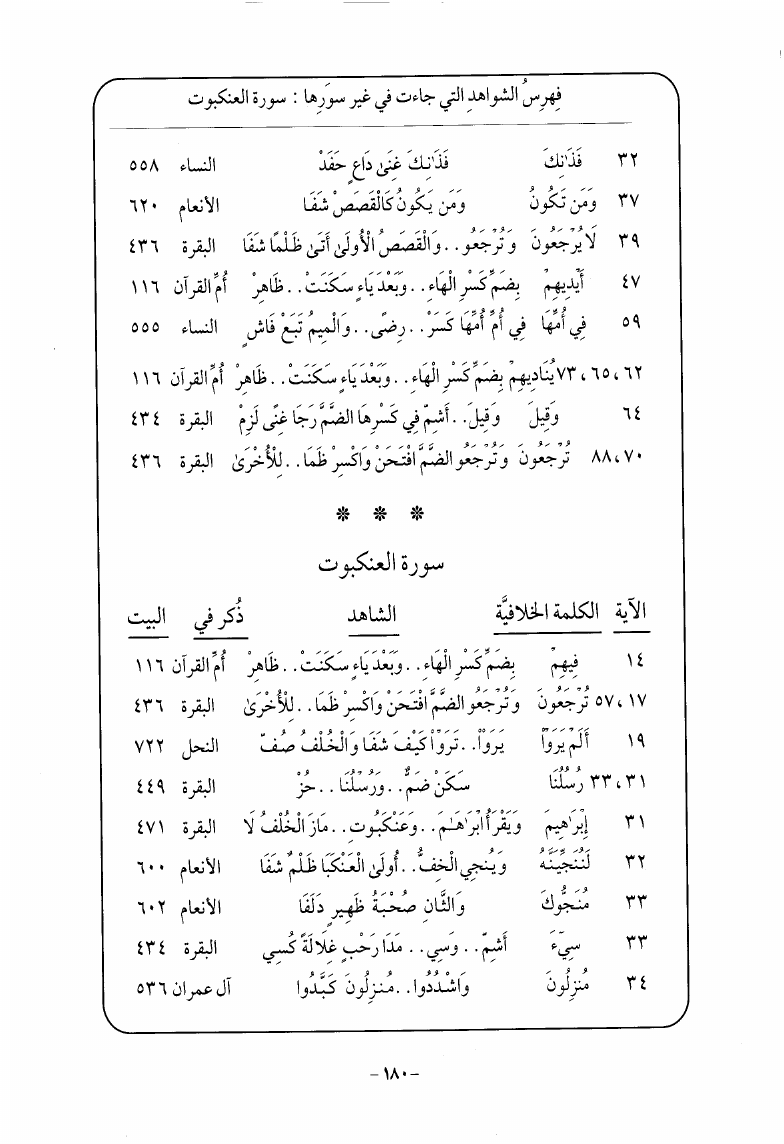 فِهرِسُ الشواهدِ التي جاءت في غير سوَرِها : سورة العنكبوت
٣٢ فَذَٰنِكَ فَذَٰنِكَ غِنىً دَاعٍ حَفَدْ النساء ٥٥٨
٣٧ وَمَن تَكُونُ وَمَن يَكُونُ كَالْقَصَصْ شَفَا الأنعام ٦٢٠
٣٩ لَا يُرْجَعُونَ وَتُرْجَعُو..وَالْقَصَصُ الْأُولَىٰ أَتَىٰ ظُلْمًا شَفَا البقرة ٤٣٦
٤٧ أَيْدِيهِمْ بِضَمِّ كَسْرِ الْهَاءِ..وَبَعْدَ يَاءٍ سَكَنَتْ..ظَاهِرْ أُمّ القرآن ١١٦
٥٩ فِي أُمِّهَا فِي أُمِّ أُمِّهَا كَسَرْ..رِضىً..وَالْمِيمُ تَبَعْ فَاشٍ النساء ٥٥٥
٦٢،٦٥،٧٣ يُنَادِيهِمْ بِضَمِّ كَسْرِ الْهَاءِ..وَبَعْدَ يَاءٍ سَكَنَتْ..ظَاهِرْ أُمّ القرآن ١١٦
٦٤ وَقِيلَ وَقِيلَ..أَشِمّ فِي كَسْرِهَا الضَّمَّ رَجَا غِنًى لَزِمْ البقرة ٤٣٤
٧٠،٨٨ تُرْجَعُونَ وَتُرْجَعُو الضَّمَّ افْتَحَنْ وَاكْسِرْ ظَمَا..لِلْأُخْرَىٰ البقرة ٤٣٦
* * *
سورة العنكبوت
الآية الكلمة الخلافيَّة الشاهد ذُكر في البيت
١٤ فِيهِمْ بِضَمِّ كَسْرِ الْهَاءِ..وَبَعْدَ يَاءٍ سَكَنَتْ..ظَاهِرْ أُمّ القرآن ١١٦
١٧،٥٧ تُرْجَعُونَ وَتُرْجَعُو الضَّمَّ افْتَحَنْ وَاكْسِرْ ظَمَا..لِلْأُخْرَىٰ البقرة ٤٣٦
١٩ أَلَمْ يَرَوْاْ يَرَوْاْ..تَرَوْاْ كَيْفَ شَفَا وَالْخُلْفُ صُفّ النحل ٧٢٢
٣١،٣٣ رُسُلُنَا سَكِّنْ ضَمُّ..وَرُسْلُنَا..حُزْ البقرة ٤٤٩
٣١ إِبْرَٰهِيمَ وَيَقْرَأُ ابْرَاهَـٰمَ..وَعَنْكَبُوت..مَازَ الْخُلْفُ لَا البقرة ٤٧١
٣٢ لَنُنَجِّيَنَّهُ وَيُنْجِي الْخِفُّ..أُولَىٰ الْعَنْكَبَا ظُلْمٌ شَفَا الأنعام ٦٠٠
٣٣ مُنَجُّوكَ وَالثَّانِ صُحْبَةُ ظَهِيرٍ دَلَفَا الأنعام ٦٠٢
٣٣ سِيٓءَ أَشِمّ..وَسِي..مَدَا رَحْبٍ غِلَالَةً كُسِي البقرة ٤٣٤
٣٤ مُنزِلُونَ وَاشْدُدُوا..مُنزِلُونَ كَبَّدُوا آل عمران ٥٣٦
-١٨٠-